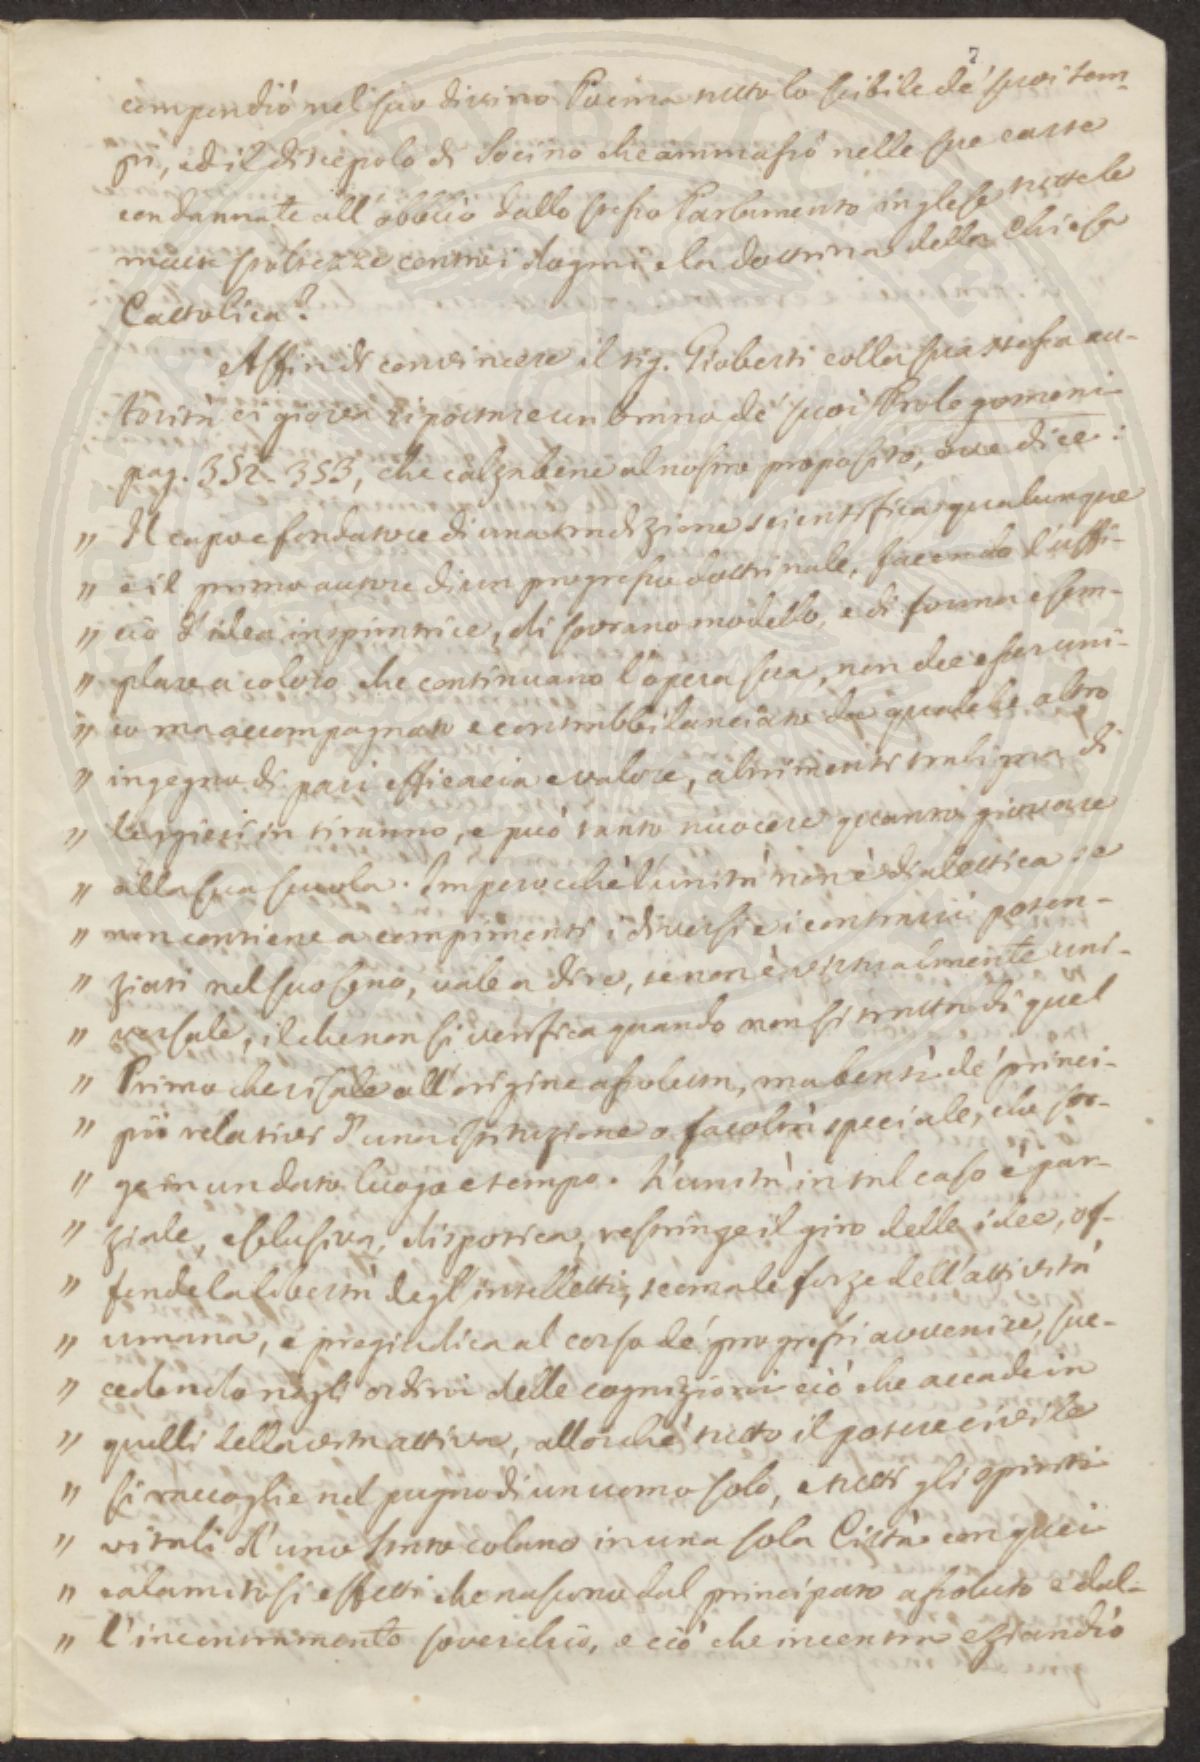 7
compendiò nel suo divino Poema tutto lo scibile de' suoi tem-
pi, ed il discepolo di Socino che ammassò nelle sue carte
condannate all'obblio dallo stesso Parlamento inglese tutte le
matte stoltezze contro i dogmi e la dottrina della Chiesa
Cattolica?
Affin di convincere il sig. Gioberti colla sua stessa au-
torità ci giova riportare un brano de' suoi Prolegomeni
pag. 352-353, che calza bene al nostro proposito, ove dice:
" Il capo e fondatore di una tradizione scientifica qualunque
" è il primo autore di un progresso dottrinale, facendo l'uffi-
" cio d'idea inspiratrice, di sovrano modello, e di forma esem-
" plare a coloro che continuano l'opera sua, non dee esser uni-
" co ma accompagnato e contrabbilanciato da qualche altro
" ingegno di pari efficacia e valore, altrimenti traligna di
" leggieri in tiranno, e può tanto nuocere quanto giovare
" alla sua scuola. Imperocchè l'unità non è dialettica se
" non contiene a compimenti i diversi e i contrarii poten-
" ziati nel suo seno, vale a dire, se non è virtualmente uni-
" versale, il che non si verifica quando non si tratta di quel
" Primo che risale all'origine assoluta, ma bensì de' princi-
" pii relativi d'una istituzione o facoltà speciale, che sor-
" ge in un dato luogo e tempo. L'unità in tal caso è par-
" ziale, esclusiva, dispotica, restringe il giro delle idee, of-
" fende la libertà degl'intelletti, scema le forze dell'attività
" umana, e pregiudica al corso de' progressi avvenire, suc-
" cedendo negli ordini delle cognizioni ciò che accade in
" quelli della vita attiva, allorchè tutto il potere civile
" si raccoglie nel pugno di un uomo solo, e tutti gli spiriti
" vitali d'uno Stato colano in una sola Città con quei
" calamitosi effetti che nascono dal principato assoluto e dal-
" l'incentramento soverchio, e ciò che incontra eziandio